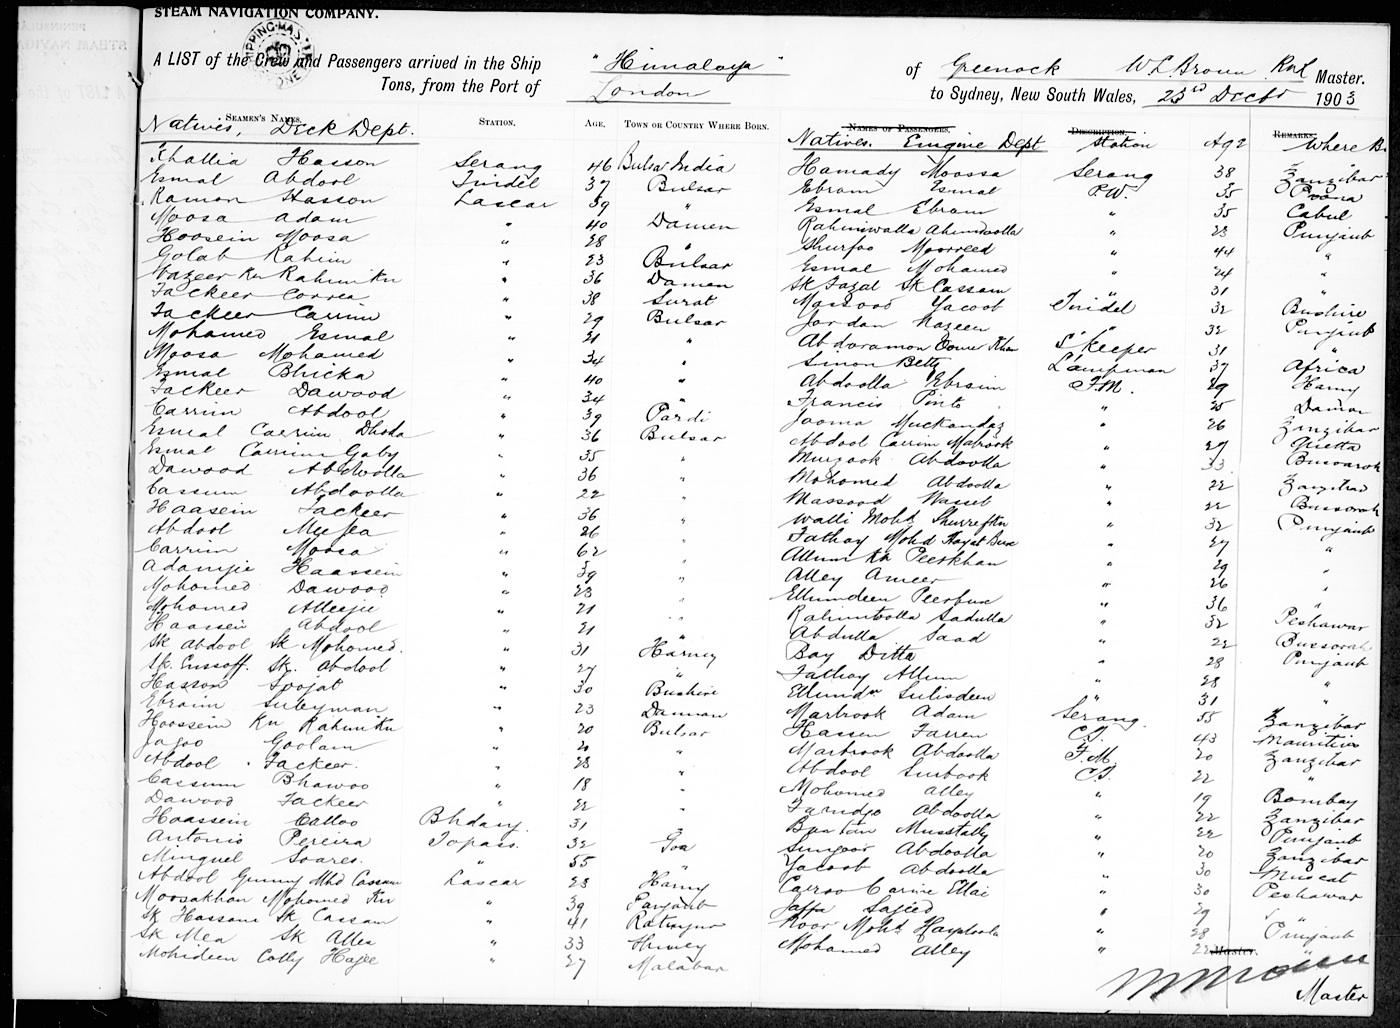 STEAM NAVIGATION COMPANY.
A LIST of the Crew and Passengers arrived in the Ship "Himalaya" of Greenock W L Brown RNR Master.
Tons, from the Port of London to Sydney, New South Wales, 23rd Decbr 1903
SEAMEN'S NAMES. STATION. AGE. TOWN OR COUNTRY WHERE BORN.
Natives, Deck Dept.
Khallia Hasson Serang 46 Bulsar India
Esmal Abdool Tindel 37 Bulsar
Ramon Hasson Lascar 39 "
Moosa Adam " 40 Damen
Hoosein Moosa " 28 "
Golab Rahim " 23 Bulsar
Vazeer Kn Rahim Kn " 36 Damen
Fackeer Correa " 38 Surat
Fackeer Carrim " 29 Bulsar
Mohamed Esmal " 21 "
Moosa Mohamed " 34 "
Esmal Bhicka " 40 "
Fackeer Dawood " 34 "
Carrim Abdool " 39 Pardi
Esmal Carrim Dhoda " 36 Bulsar
Esmal Carrim Gaby " 35 "
Dawood Abdoolla " 36 "
Cassum Abdoolla " 22 "
Haasein Fackeer " 36 "
Abdool " 26 "
Carrim Moosa " 62 "
Adamjie Haassein " 39 "
Mohomed Dawood " 23 "
Mohomed Alleejie " 21 "
Haassein Abdool " 21 "
Sk Abdool Sk Mohomed " 31 Harney
Sk. Eussoff. Sk. Abdool " 27 "
Hasson " 30 Bushire
Ebraim Suleyman " 23 Damman
Hoossein Kn Rahim Kn " 20 Bulsar
Jagoo Goolam " 20 "
Abdool Fackeer. " 23 "
Cassum Bhawoo " 18 "
Dawood Fackeer " 22 "
Haassein Calloo Bhdary. 31 "
Antonio Pereira Topass. 32 Goa
Minguel Soares. " 55 "
Abdool Gunny Mhd Cassum Lascar 23 Harny
Moosakhan Mohomed Kn " 39 Punjaub
Sk Hassan Sk Cassam " 41
Sk Mea Sk Allea " 33
Mohideen Colly Hajee " 27 Malabar
NAMES OF PASSENGERS. DESCRIPTION. REMARKS.
Natives. Engine Dept Station Age Where B
Hamady Moossa Serang 38 Zanzibar
Ebram Esmal P.W. 35 Poona
Esmal Ebram " 35 Cabul
Rahimwalla Ahmdoolla " 23 Punjaub
Shurfoo Moorreed " 44 "
Esmal Mohamed " 24 "
Sk Fazal Sk Cassam " 31 "
Massood Yacoob Tindel 32 Bushire
Jordan Nazeen " 32 Punjaub
Abdaramon Oomer Khan S'keeper 31 "
Simon Betty Lampman 37 Africa
Abdoolla Ebrsim F.M. 29 Harny
Francis Pinto " 25 Daman
Jooma Muckandaz " 26 Zanzibar
Abdool Carrim Mabrook " 27 Quetta
Murzook Abdoolla " 33 Bussorah
Mohomed Abdoolla " 22 Zanzibar
Massood Nasseb " 22 Bussorah
Walli Mohd Shurrefdn " 32 Punjaub
Fathay Mohd Hayat Bux " 27 "
Allum Kn Peerkhan " 29 "
Alley Ameer " 26 "
Ellumdeen Peerbux " 36 "
Rahimtoolla Sadulla " 32 Peshawar
Abdulla Saad " 22 Bussorah
Bay Ditta " 28 Punjaub
Fathay Allum " 28 "
Ellumdn " 31 "
Marbrook Adam Serang. 55 Zanzibar
Hassen Farren C.T. 43 Mauritius
Marbrook Abdoolla F.M. 20 Zanzibar
Abdool Surbook C.T. 22 "
Mohomed Alley " 19 Bombay
Farudjo Abdoolla " 22 Zanzibar
" 22 Punjaub
Sungoor Abdoolla " 20 Zanzibar
Yacoob Abdoolla " 30 Muscat
" 30 Peshawar
Jaffa Sajeed " 29 "
Noor Mohd " 28 Punjaub
Mohamed Alley " 22 "
Master.
W L Brown
Master